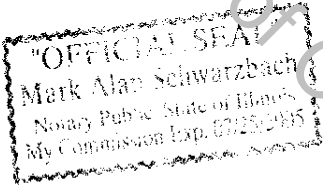 "OFFICIAL SEAL"
Mark Alan Schwarzbach
Notary Public, State of Illinois
My Commission Exp. 07/25/1995